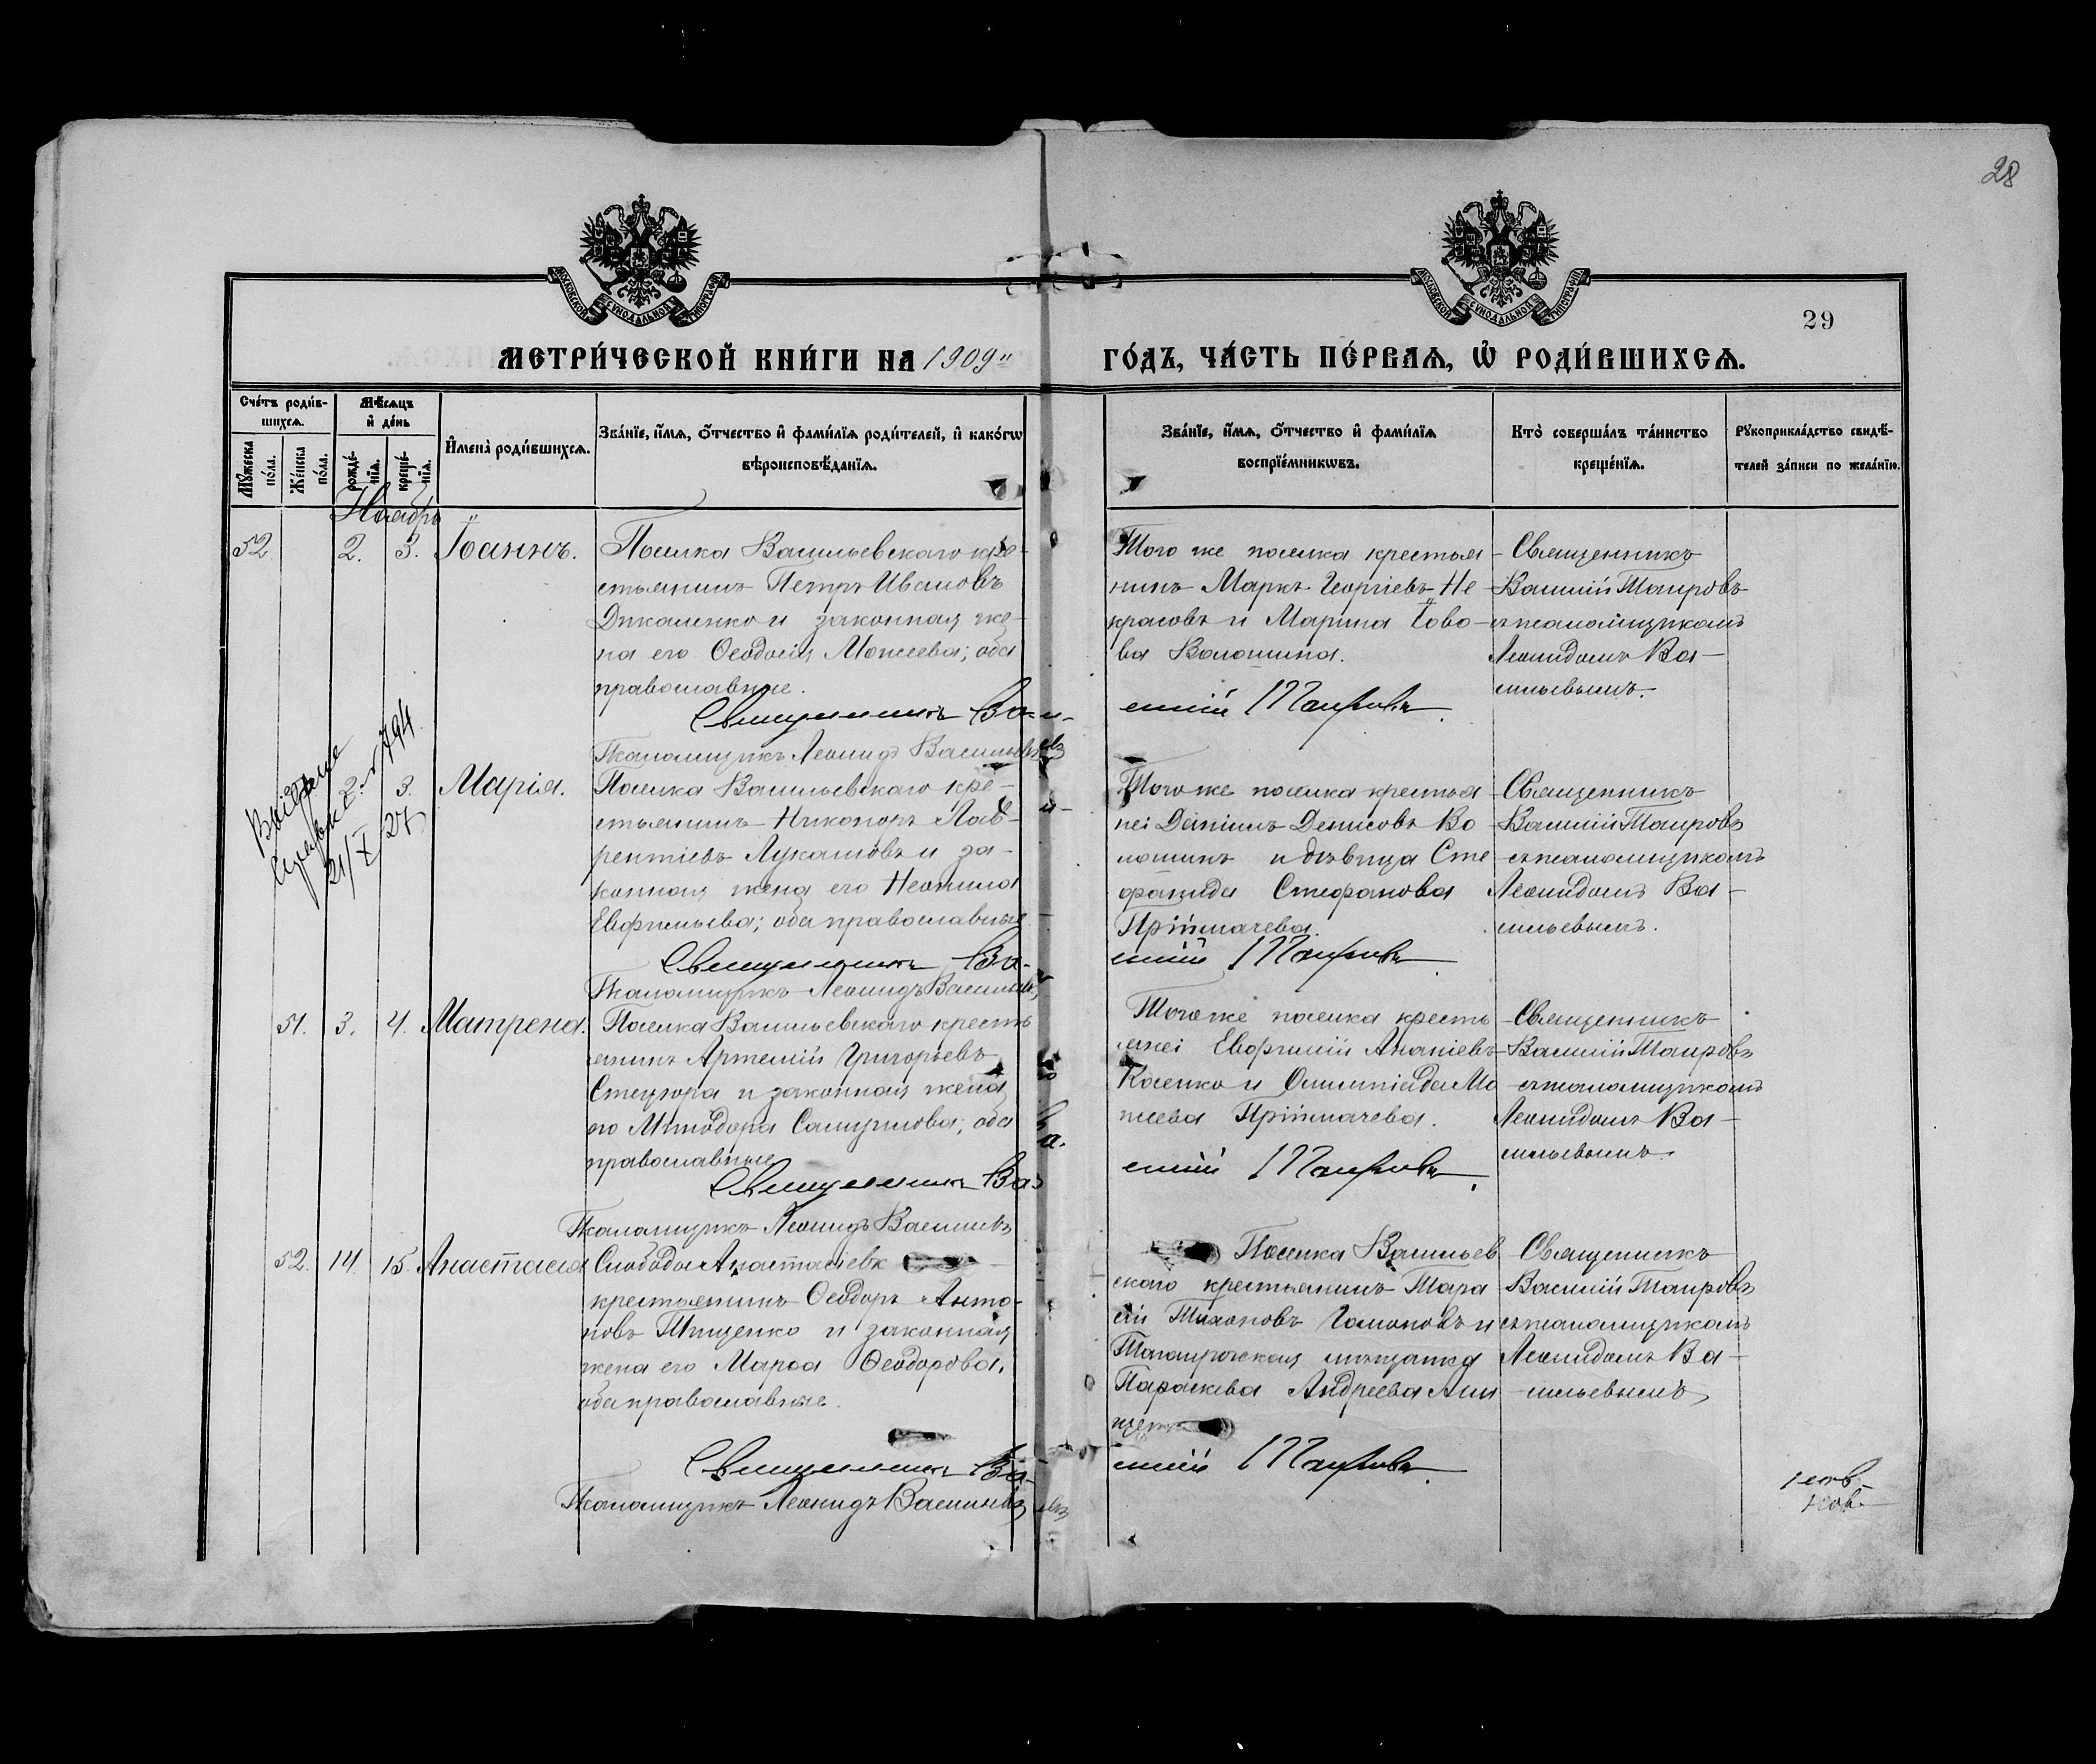 28
МОСКОВСКОЙ СѴНОДАЛЬНОЙ ТИПОГРАФІИ
МОСКОВСКОЙ СѴНОДАЛЬНОЙ ТИПОГРАФІИ
29
МЕТРИ́ЧЕСКОЙ КНИ́ГИ НА 1909 ГО́ДЪ, ЧА́СТЬ ПЕ́РВАѦ, Ѡ҆ РОДИ́ВШИХСѦ.
Сче́тъ роди́в-
шихсѧ.
Мꙋжеска по́ла.
Же́нска по́ла.
Мѣ́сѧцъ
и҆ де́нь
рожде́-
нїѧ.
креще́-
нїѧ.
И҆мена̀ роди́вшихсѧ.
Зва́нїе, и҆́мѧ, ѻ҆́тчество и҆ фами́лїѧ роди́телей, и҆ како́гѡ
вѣроисповѣ́данїѧ.
Зва́нїе, и҆́мѧ, ѻ҆́тчество и҆ фами́лїѧ
воспрїе́мникѡвъ.
Кто̀ соверша́лъ та́инство
креще́нїѧ.
Рꙋкоприкла́дство свидѣ́-
телей за́писи по жела́нїю.
Ноябрь
52. 2. 3. Іоаннъ.
Поселка Васильевскаго кре-
стьянинъ Петръ Ивановъ
Дикаленко и законная же-
на его Ѳеодосія Моисеева; оба
православные.
Священникъ Ва-
Псаломщикъ Леонидъ Васильевъ
Того же поселка крестья-
нинъ Маркъ Георгіевъ Не-
красовъ и Марина Іово-
ва Волошина.
силій Таировъ.
Священникъ
Василій Таировъ
съ псаломщикомъ
Леонидомъ Ва-
сильевымъ.
21/X 27
2. 3. Марія.
Поселка Васильевскаго кре-
стьянинъ Никоноръ Лав-
рентіевъ Лукашовъ и за-
конная жена его Неонила
Евфимьева; оба православные
Священникъ Ва-
Псаломщикъ Леонидъ Васильевъ
Того же поселка крестья-
не: Даніилъ Денисовъ Во
лошинъ и дѣвица Сте
фанида Стефанова
Пріймачева.
силій Таировъ.
Священникъ
Василій Таировъ
съ псаломщикомъ
Леонидомъ Ва-
сильевымъ.
51. 3. 4. Матрена.
Поселка Васильевскаго кресть
янинъ Артемій Григорьевъ
Стецюра и законная жена
его Минодора Самуилова; оба
православные
Священникъ Ва-
Псаломщикъ Леонидъ Васильевъ
Того же поселка кресть
яне: Евфимій Ананіевъ
Касенко и Олимпіада Мо
исеева Пріймачева.
силій Таировъ.
Священникъ
Василій Таировъ
съ псаломщикомъ
Леонидомъ Ва-
сильевымъ.
52. 14. 15. Анастасія
Слободы Анастасіевк
крестьянинъ Ѳеодоръ Анто-
новъ Тищенко и законная
жена его Марѳа Ѳеодорова,
оба православные.
Священникъ Ва-
Псаломщикъ Леонидъ Васильевъ
Поселка Васильев
скаго крестьянинъ Тара
сій Тихоновъ Гамоновъ и
Таганрогская мѣщанка
Параскева Андреева
силій Таировъ.
Священникъ
Василій Таировъ
съ псаломщикомъ
Леонидомъ Ва-
сильевымъ